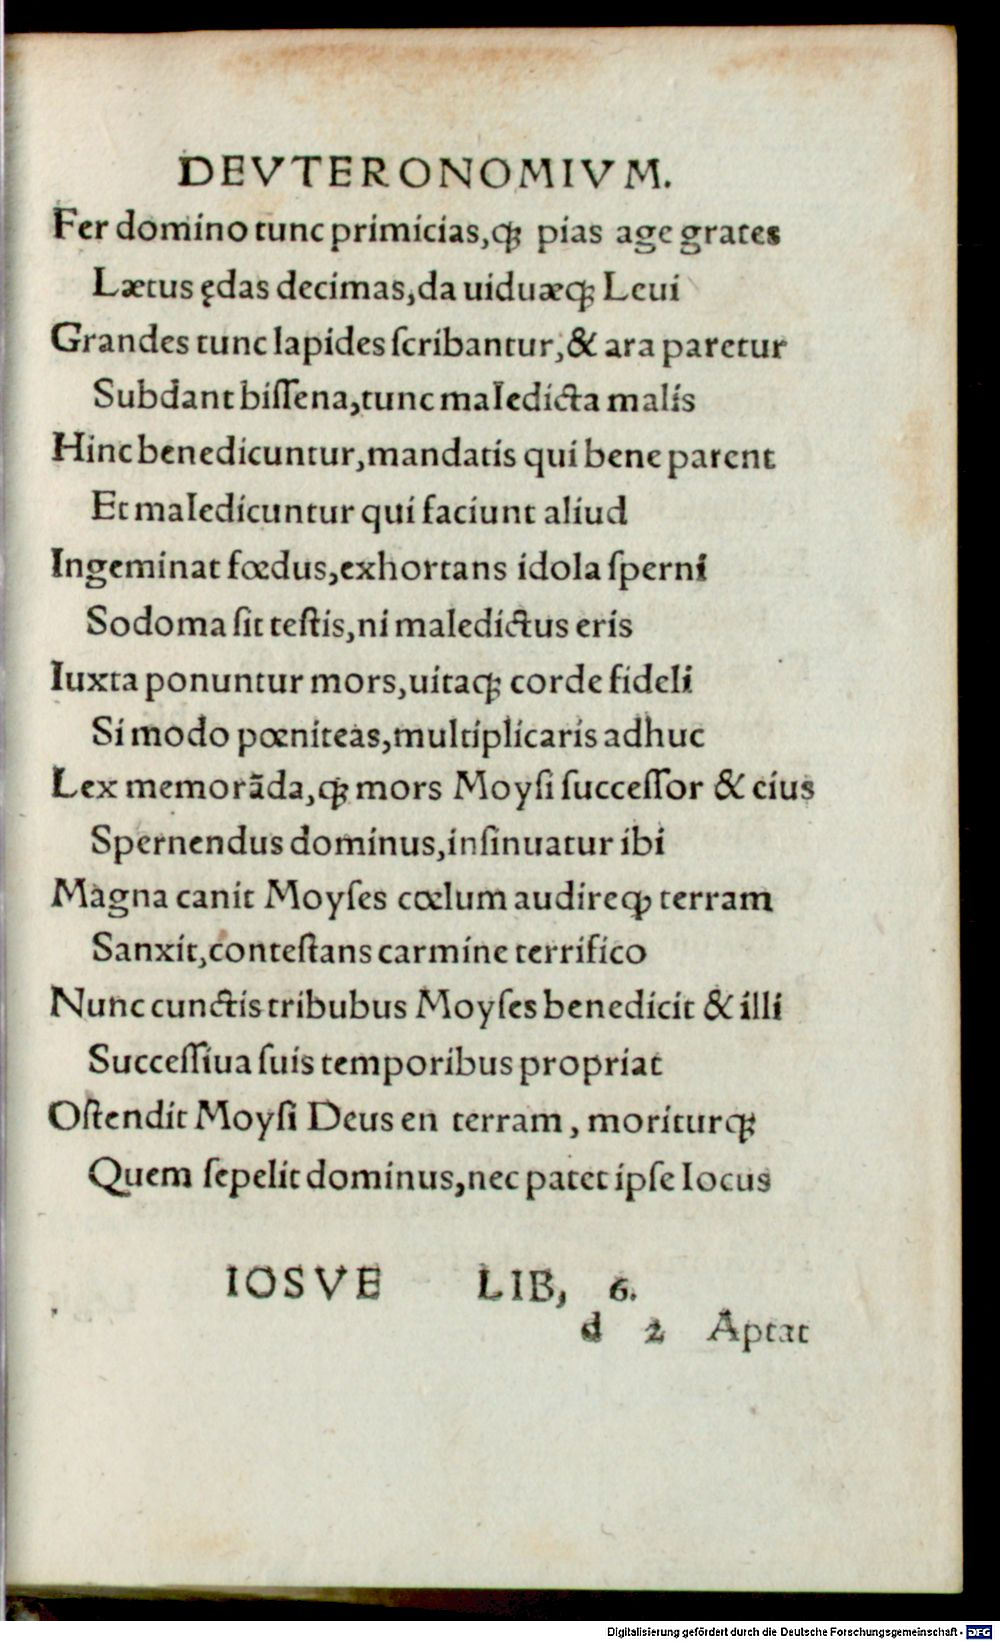 DEVTERONOMIVM.
Fer domino tunc primicias,qꝫ pias age grates
Lætus ędas decimas,da uiduæqꝫ Leui
Grandes tunc lapides ſcribantur,& ara paretur
Subdant biſſena,tunc maledicta malis
Hinc benedicuntur,mandatis qui bene parent
Et maledicuntur qui faciunt aliud
Ingeminat fœdus,exhortans idola ſperni
Sodoma ſit teſtis,ni maledictus eris
Iuxta ponuntur mors,uitaqꝫ corde fideli
Si modo pœniteas,multiplicaris adhuc
Lex memorãda,qꝫ mors Moyſi ſucceſſor & eius
Spernendus dominus,inſinuatur ibi
Magna canit Moyſes cœlum audireqꝫ terram
Sanxit,conteſtans carmine terrifico
Nunc cunctis tribubus Moyſes benedicit & illi
Succeſſiua ſuis temporibus propriat
Oſtendit Moyſi Deus en terram, moriturqꝫ
Quem ſepelit dominus,nec patet ipſe locus
IOSVE LIB, 6.
d 2 Aptat
Digitalisierung gefördert durch die Deutsche Forschungsgemeinschaft - DFG